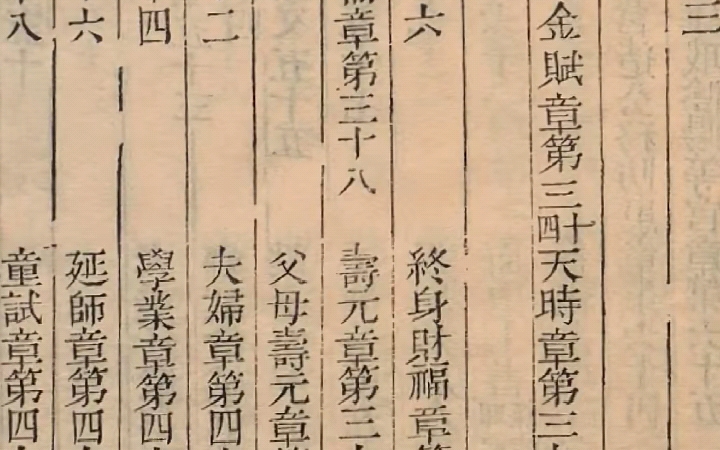 三
金賦章第三十四天時章第三十
六
終身財福章第
章第三十八
壽元章第三十
父母壽元章
二
夫婦章第四十
四
學業章第四十
十六
延師章第四十
十八
童試章第四十